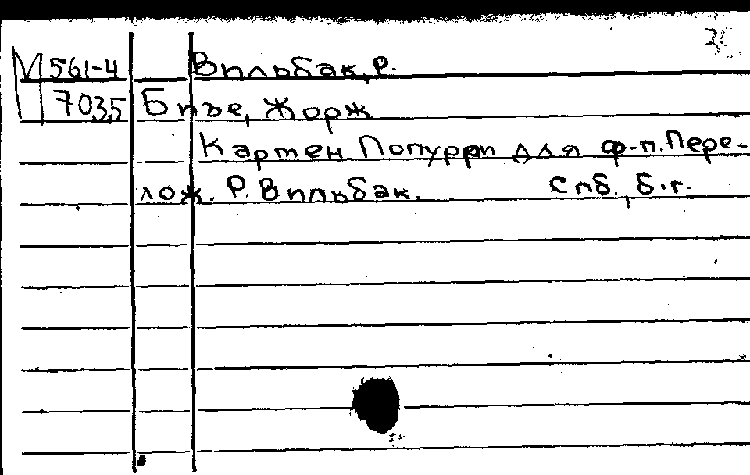 М 561-4 Вильбак, Р.
7035 Бизе, Жорж
Кармен Попурри для ф-п. Пере-
лож. Р. Вильбак. Спб., б.г.